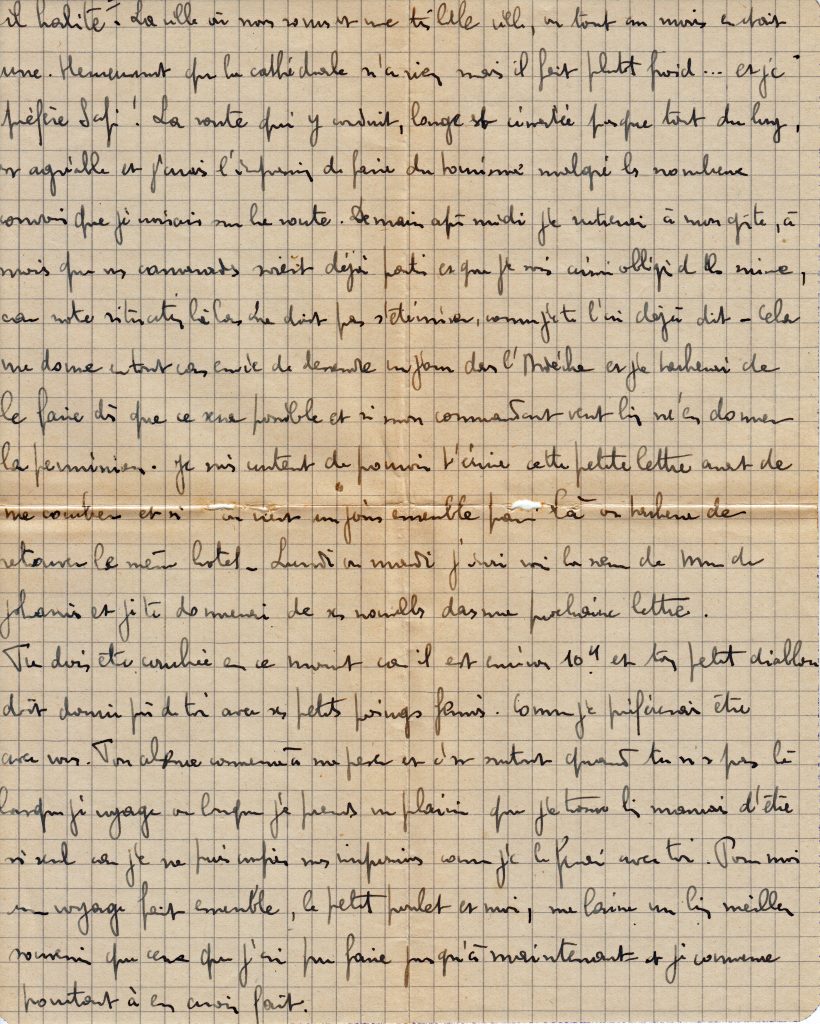 il habite. La ville où nous sommes est une très belle ville, ou tout au moins en était
une. Heureusement que la cathédrale n'a rien mais il fait plutôt froid... et je
préfère Safi ! La route qui y conduit, longe et presque tout du long,
est agréable et j'avais l'impression de faire du tourisme malgré les nombreux
convois que je croisais sur la route. Demain après midi je rentrerai à mon gîte, à
moins que mes camarades soient déjà partis et que je sois aussi obligé de les suivre,
car notre situation là bas ne doit pas s'éterniser, comme je te l'ai déjà dit - Cela
me donne en tout cas envie de descendre un jour dans l'Ardèche et je tâcherai de
le faire dès que ce sera possible et si mon commandant veut bien m'en donner
la permission. Je suis content de pouvoir t'écrire cette petite lettre avant de
me coucher et si on vient un jour ensemble par là on tâchera de
retrouver le même hotel - Lundi ou mardi j'irai voir la soeur de Mme de
Johanis et je te donnerai de ses nouvelles dans ma prochaine lettre.
Tu dois être couchée en ce moment car il est environ 10H et ton petit diablou
doit dormir près de toi avec ses petits poings fermés. Comme je préférerais être
avec vous. Ton absence commence à me peser et c'est surtout quand tu n'es pas là
lorsque je voyage ou lorsque je prends un plaisir que je trouve bien mauvais d'être
si seul car je ne puis nos impressions comme je le ferai avec toi. Pour moi
un voyage fait ensemble, le petit poulet et moi, me laisse un bien meilleur
souvenir que ceux que j'ai pu faire jusqu'à maintenant et je commence
pourtant à en avoir fait.